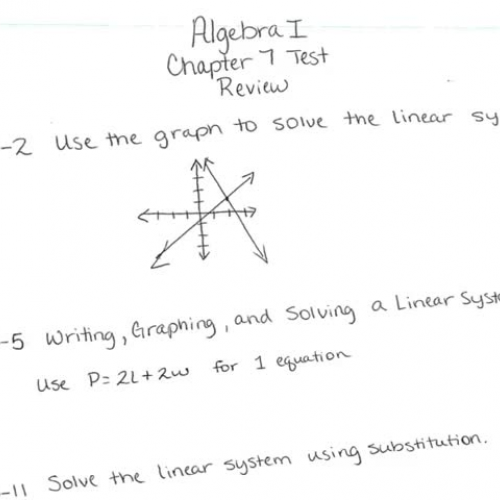 Algebra I
Chapter 7 Test
Review
-2 Use the graph to solve the linear sy
-5 Writing, Graphing, and Solving a Linear Syst
Use P=2L+2w for 1 equation
-11 Solve the linear system using substitution.